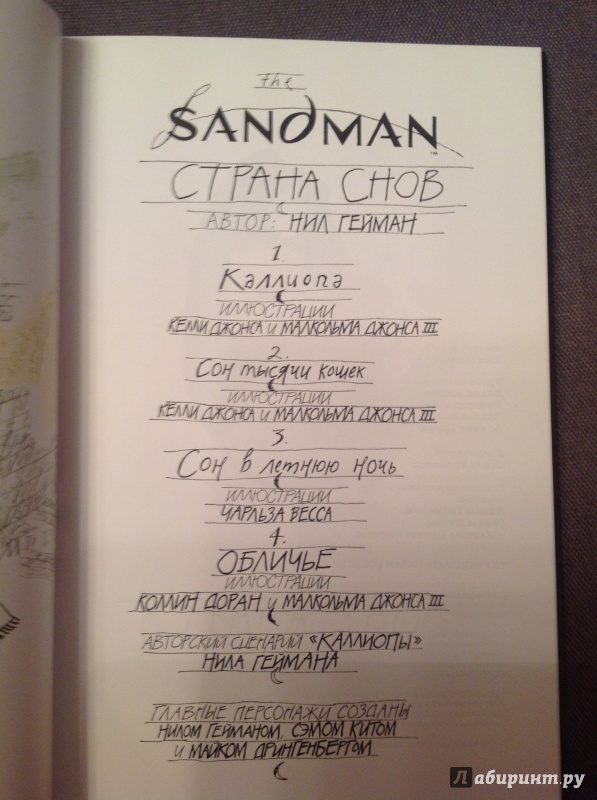 the
SANDMAN™
СТРАНА СНОВ
АВТОР: НИЛ ГЕЙМАН
1.
Каллиопа
ИЛЛЮСТРАЦИИ
КЕЛЛИ ДЖОНСА И МАЛКОЛЬМА ДЖОНСА III
2.
Сон тысячи кошек
ИЛЛЮСТРАЦИИ
КЕЛЛИ ДЖОНСА И МАЛКОЛЬМА ДЖОНСА III
3.
Сон в летнюю ночь
ИЛЛЮСТРАЦИИ
ЧАРЛЬЗА ВЕССА
4.
ОБЛИЧЬЕ
ИЛЛЮСТРАЦИИ
КОЛЛИН ДОРАН И МАЛКОЛЬМА ДЖОНСА III
АВТОРСКИЙ СЦЕНАРИЙ «КАЛЛИОПЫ»
НИЛА ГЕЙМАНА
ГЛАВНЫЕ ПЕРСОНАЖИ СОЗДАНЫ
НИЛОМ ГЕЙМАНОМ, СЭМОМ КИТОМ
И МАЙКОМ ДРИНГЕНБЕРГОМ
Лабиринт.ру